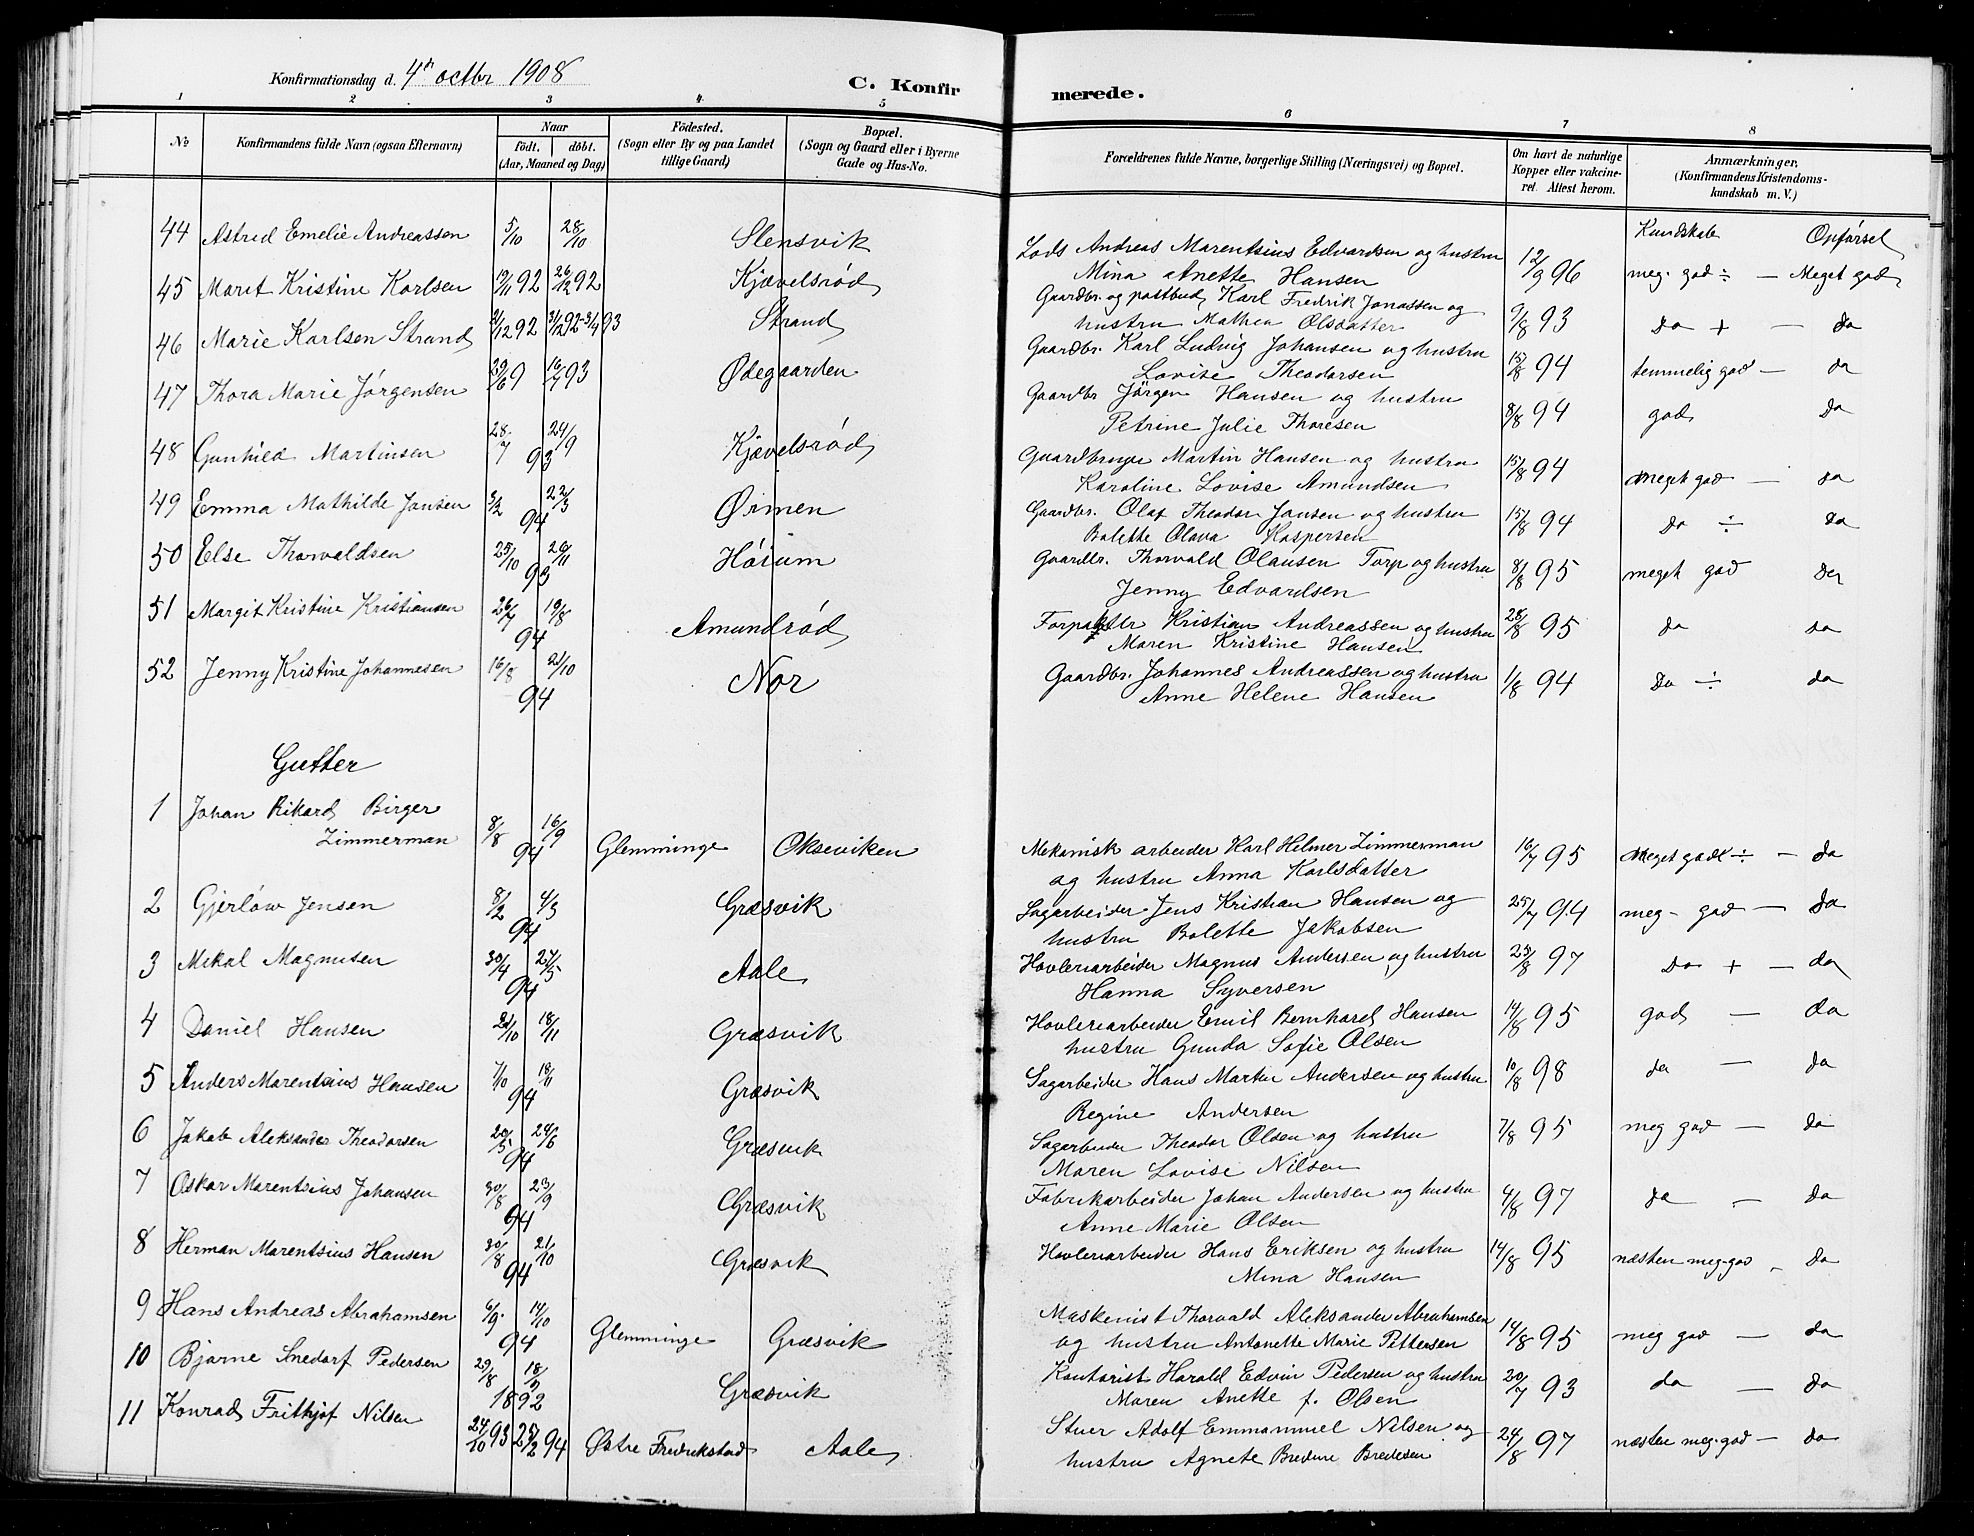 Konfirmationsdag d. 4de octbr 1908
C. Konfirmerede.
1 2 3 4 5 6 7 8
No
Konfirmandens fulde Navn (ogsaa Efternavn)
Naar
født. døbt.
(Aar, Maaned og Dag)
Födested.
(Sogn eller By og paa Landet
tillige Gaard)
Bopæl.
(Sogn og Gaard eller i Byerne
Gade og Hus-No.
Forældrenes fulde Navne, borgerlige Stilling (Næringsvei) og Bopæl.
Om havt de naturlige
Kopper eller vakcine-
ret. Attest herom.
Anmærkninger.
(Konfirmandens Kristendoms-
kundskab m. V.)
Kundskab Opførsel
44 Astred Emelie Andreassen 5/10 28/10 Slensvik Lods Andreas Marentsius Edvardsen og hustru 12/9 96 meg. god ÷ — Meget god
Mina Anette Hansen
45 Marit Kristine Karlsen 19/11 92 26/12 92 Kjævelsrød Gaardbr. og postbud Karl Fredrik Jonassen og 9/8 93 Do + — do
hustru Mathea Olsdatter
46 Marie Karlsen Strand 2/12 92 31/12 92 - 3/4 93 Strand Gaardbr. Karl Ludvig Johansen og hustru 15/8 94 temmelig god — do
Lovise Theodorsen
47 Thora Marie Jørgensen 29/6 9 16/7 93 Ødegaarden Gaardbr Jörgen Hansen og hustru 8/8 94 god do
Petrine Julie Thoresen
48 Gunhild Martinsen 28/7 24/9 93 Kjævelsrød Gaardbruger Martin Hansen og hustru 15/8 94 Meget god — do
Karoline Lovise Amundsen
49 Emma Mathilde Jansen 3/2 22/3 94 Ørmen Gaardbr. Olaf Theodor Jansen og hustru 15/8 94 Do ÷ do
Bolette Olava Kaspersen
50 Else Thorvaldsen 25/10 26/11 93 Høium Gaardbr. Thorvald Olausen Torp og hustru 8/8 95 meget god do
Jenny Edvardsen
51 Margit Kristine Kristiansen 26/7 19/8 94 Amundrød Forpakter Kristian Andreassen og hustru 28/8 95 do do
Maren Kristine Hansen
52 Jenny Kristine Johannesen 16/8 21/10 94 Nor Gaardbr. Johannes Andreassen og hustru 1/8 94 Do ÷ do
Anne Helene Hansen
Gutter
1 Johan Rikard Birger
Zimmerman 8/8 16/9 94 Glemminge Okseviken Mekanisk arbeider Karl Helmer Zimmerman 16/7 95 Meget god ÷ — do
og hustru Anna Karlsdatter
2 Gjerløw Jensen 8/2 4/3 94 Græsvik Sagarbeider Jens Kristian Hansen og 25/7 94 meg - god — do
hustru Bolette Jakobsen
3 Mikal Magnusen 30/4 27/5 94 Aale Hovleriarbeider Magnus Andersen og hustru 23/8 97 Do + — do
Hanna Syversen
4 Daniel Hansen 21/10 18/11 Græsvik Hovleriarbeider Emil Bernhard Hansen 14/8 95 god — do
hustru Gunda Sofie Olsen
5 Anders Marentsius Hansen 7/10 18/11 94 Græsvik Sagarbeider Hans Martin Andersen og hustru 10/8 98 do — do
Regine Andersen
6 Jakob Aleksander Theodorsen 20/5 24/6 94 Græsvik Sagarbeider Theodor Olsen og hustru 7/8 95 meg god — do
Maren Lovise Nilsen
7 Oskar Marentsius Johansen 30/8 23/9 94 Græsvik Fabrikarbeider Johan Andersen og hustru 4/8 97 do — do
Anne Marie Olsen
8 Herman Marentsius Hansen 30/8 21/10 94 Græsvik Hovleriarbeider Hans Eriksen og hustru 14/8 95 næsten meg-god - do
Mina Hansen
9 Hans Andreas Abrahamsen 6/9 14/10 94 Glemminge Græsvik Maskinist Thorvald Aleksander Abrahamsen 14/8 95 meg god — do
og hustru Antonette Marie Pettersen
10 Bjarne Snedorf Pedersen 29/8 18/9 1892 Græsvik Kontorist Harald Edvin Pedersen og hustru 20/7 93 do — do
Maren Anette f. Olsen
11 Konrad Frithjof Nilsen 24/10 93 25/2 94 Østre Fredrikstad Aale Stuer Adolf Emmanuel Nilsen og 24/8 97 næsten meg.god — do
hustru Agnete Bredine Bredesen